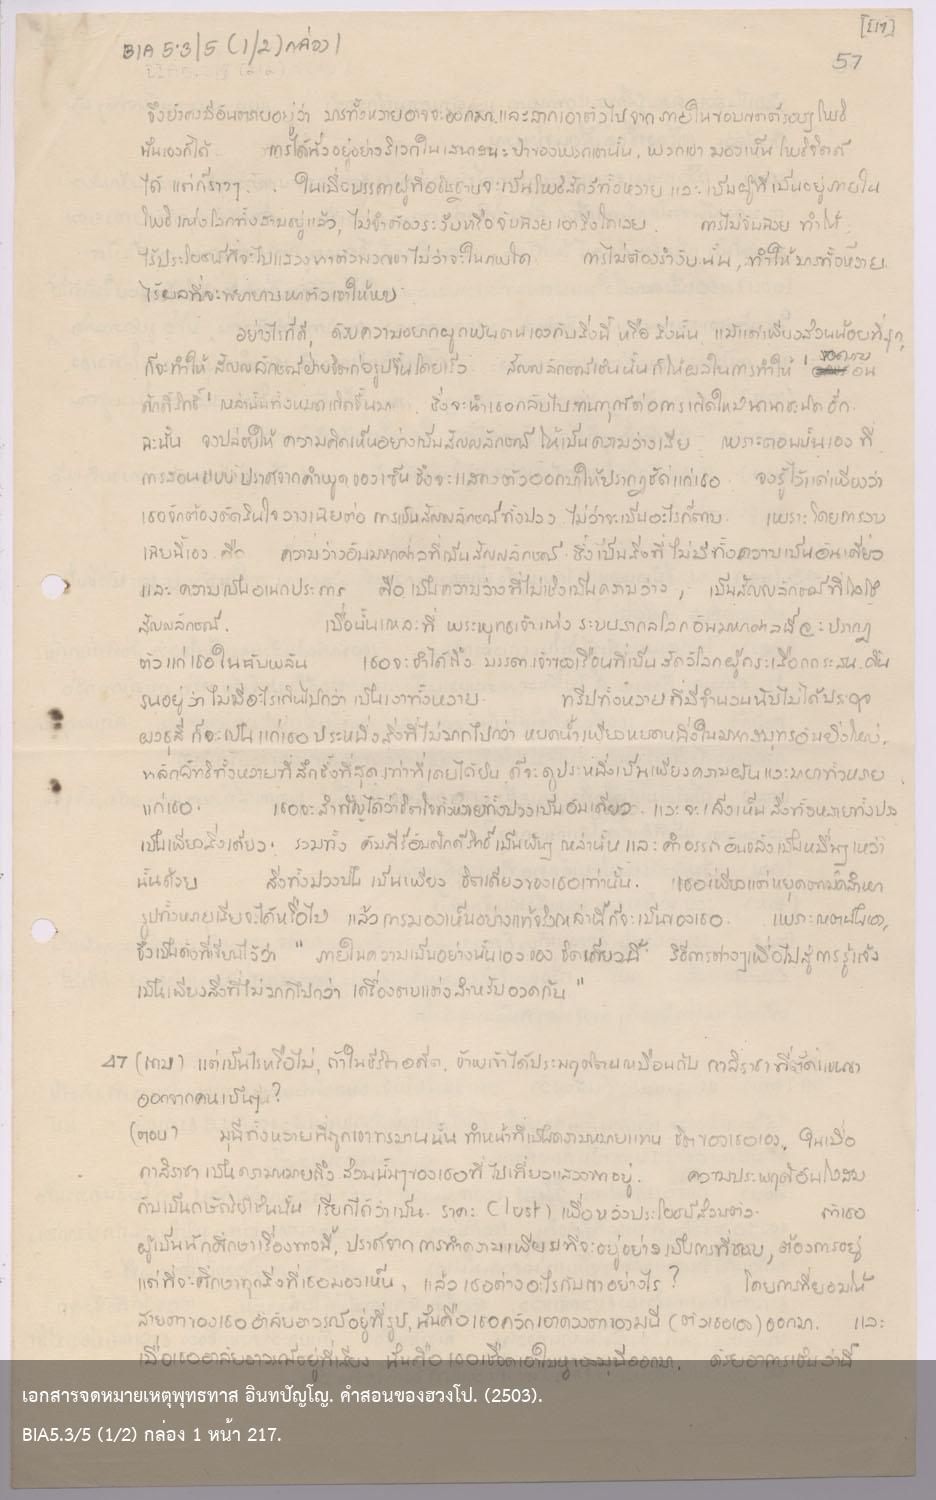 BIA 5.3/5 (1/2) กล่อง 1
57
จึงยังคงมีอันตรายอยู่ว่า มารทั้งหลายอาจจะออกมา และลากเอาตัวไปจาก ภายในขอบเขตต์รอบๆ โพธิ
นั่นเองก็ได้ การได้นั่งอยู่อย่างวิเวกในเสนาสนะป่าของพวกเขานั้น, พวกเขา มองเห็น โพธิจิตต์
ได้ แต่ก็ราวๆ. ในเมื่อบรรดาผู้ที่อธิษฐานจะเป็นโพธิสัตว์ทั้งหลาย และ เป็นผู้ที่เป็นอยู่ภายใน
โพธิแห่งโลกทั้งสามอยู่แล้ว, ไม่จำต้องระงับหรือจับฉวย เอาสิ่งใดเลย. การไม่จับฉวย ทำให้
ไร้ประโยชน์ที่จะไปแสวงหาตัวพวกเขา ไม่ว่าจะในภพใด การไม่ต้องระงับนั้น, ทำให้มารทั้งหลาย
ไร้ผลที่จะพยายามหาตัวเขาให้พบ
อย่างไรก็ดี, ด้วยความอยากผูกพันตนเองกับสิ่งนี้ หรือ สิ่งนั้น แม้แต่เพียงส่วนน้อยที่สุด,
ก็จะทำให้ สัญญลักษณ์ฝ่ายจิตก่อรูปขึ้นโดยเร็ว สัญญลักษณ์เช่นนั้นก็ให้ผลในการทำให้ ' อัน
ศักดิ์สิทธิ์ ' เหล่านั้นทั้งหมดเกิดขึ้นมา ซึ่งจะนำเธอกลับไปทนทุกข์ต่อการเกิดใหม่นานาชะนิด อีก
ฉะนั้น จงปล่อยให้ ความคิดเห็นอย่างเป็นสัญญลักษณ์ ให้เป็นความว่างเสีย เพราะตอนนั้นเอง ที่
การสอนแบบปราศจากคำพูดของเซ็น ซึ่งจะแสดงตัวออกมาให้ปรากฏชัดแก่เธอ จงรู้ไว้แต่เพียงว่า
เธอจักต้องตัดสินใจวางเฉยต่อ การเป็นสัญญลักษณ์ทั้งปวง ไม่ว่าจะเป็นอะไรก็ตาม เพราะโดยการวาง
เฉยนี้เอง คือ ความว่างอันมหาศาลที่เป็นสัญญลักษณ์ ซึ่งเป็นสิ่งที่ ไม่มีทั้งความเป็นอันเดียว
และ ความเป็นอเนกประการ คือ เป็นความว่างที่ไม่เชิงเป็นความว่าง, เป็นสัญญลักษณ์ที่ไม่ใช่
สัญญลักษณ์. เมื่อนั้นแหละที่ พระพุทธเจ้าแห่ง ระบบสากลโลกอันมหาศาลนี้จะปรากฏ
ตัวแก่เธอในฉับพลัน เธอจะจำได้ถึง บรรดาเจ้าของเรือนที่เป็นสัตว์โลกผู้กระเสือกกระสน ดิ้น
รนอยู่ ว่าไม่มีอะไรเกินไปกว่า เป็นเงาทั้งหลาย ทวีปทั้งหลายที่มีจำนวนนับไม่ได้ประดุจ
ผงธุลี ก็จะเป็นแก่เธอ ประหนึ่งสิ่งที่ไม่มากไปกว่า หยดน้ำเพียงหยดหนึ่งในมหาสมุทรอันยิ่งใหญ่.
หลักลัทธิทั้งหลายที่ลึกซึ้งที่สุด เท่าที่เคยได้ยิน ก็จะดูประหนึ่งเป็นเพียงความฝันและมายาทั้งหลาย
แก่เธอ. เธอจะสำคัญได้ว่าจิตใจทั้งหลายทั้งปวงเป็นอันเดียว และจะเล็งเห็น สิ่งทั้งหลายทั้งปวง
เป็นเพียงสิ่งเดียว. รวมทั้ง คัมภีร์อันศักดิ์สิทธิ์เป็นพันๆ เหล่านั้น และ คำอรรถอันขลังเป็นหมื่นๆ เหล่า
นั้นด้วย สิ่งทั้งปวงนั้น เป็นเพียง จิตเดียวของเธอเท่านั้น. เธอเพียงแต่หยุดตามค้นหา
รูปทั้งหลายเสียจะได้หรือไม่ แล้ว การมองเห็นอย่างแท้จริงเหล่านี้ก็จะเป็นของเธอ. เพราะเหตุนั้นเอง,
จึงเป็นดังที่เขียนไว้ว่า " ภายในความเป็นอย่างนั้นเอง ของ จิตเดียวนี้ วิธีการต่างๆ เพื่อไปสู่ การรู้แจ้ง
เป็นเพียงสิ่งที่ไม่มากไปกว่า เครื่องตบแต่งสำหรับอวดกัน "
47 (ถาม) แต่เป็นไรหรือไม่, ถ้าในชีวิตอดีต, ข้าพเจ้าได้ประพฤติตนเหมือนกับ กาลิราชา ที่ตัดแขนขา
ออกจากคนเป็นๆ?
(ตอบ) มุนีทั้งหลายที่ถูกเอาทรมานนั้น ทำหน้าที่เป็นความหมายแทน จิตของเธอเอง, ในเมื่อ
กาลิราชา เป็นความหมายถึง ส่วนนั้นๆของเธอที่ไปเที่ยวแสวงหาอยู่. ความประพฤติอันไม่สม
กับเป็นกษัตริย์เช่นนั้น เรียกได้ว่าเป็น ราคะ (lust) เพื่อหวังประโยชน์ส่วนตัว. ถ้าเธอ
ผู้เป็นนักศึกษาเรื่องทางนี้, ปราศจาก การทำความเพียร ที่จะอยู่อย่างเป็นการที่ชอบ, ต้องการอยู่
แต่ที่จะศึกษาทุกสิ่งที่เธอมองเห็น, แล้ว เธอต่างอะไรกับเขาอย่างไร? โดยการที่ยอมให้
สายตาของเธอ อาลัยอาวรณ์อยู่ที่รูป, นั่นคือ เธอควักเอาดวงตาของมุนี (ตัวเธอเอง) ออกมา. และ
เมื่อเธออาลัยอาวรณ์อยู่ที่เสียง นั่นคือ เธอเชือดเอาใบหูของมุนีออกมา. ด้วยอาการเช่นว่านี้
เอกสารจดหมายเหตุพุทธทาส อินทปัญโญ. คำสอนของฮวงโป. (2503).
BIA5.3/5 (1/2) กล่อง 1 หน้า 217.